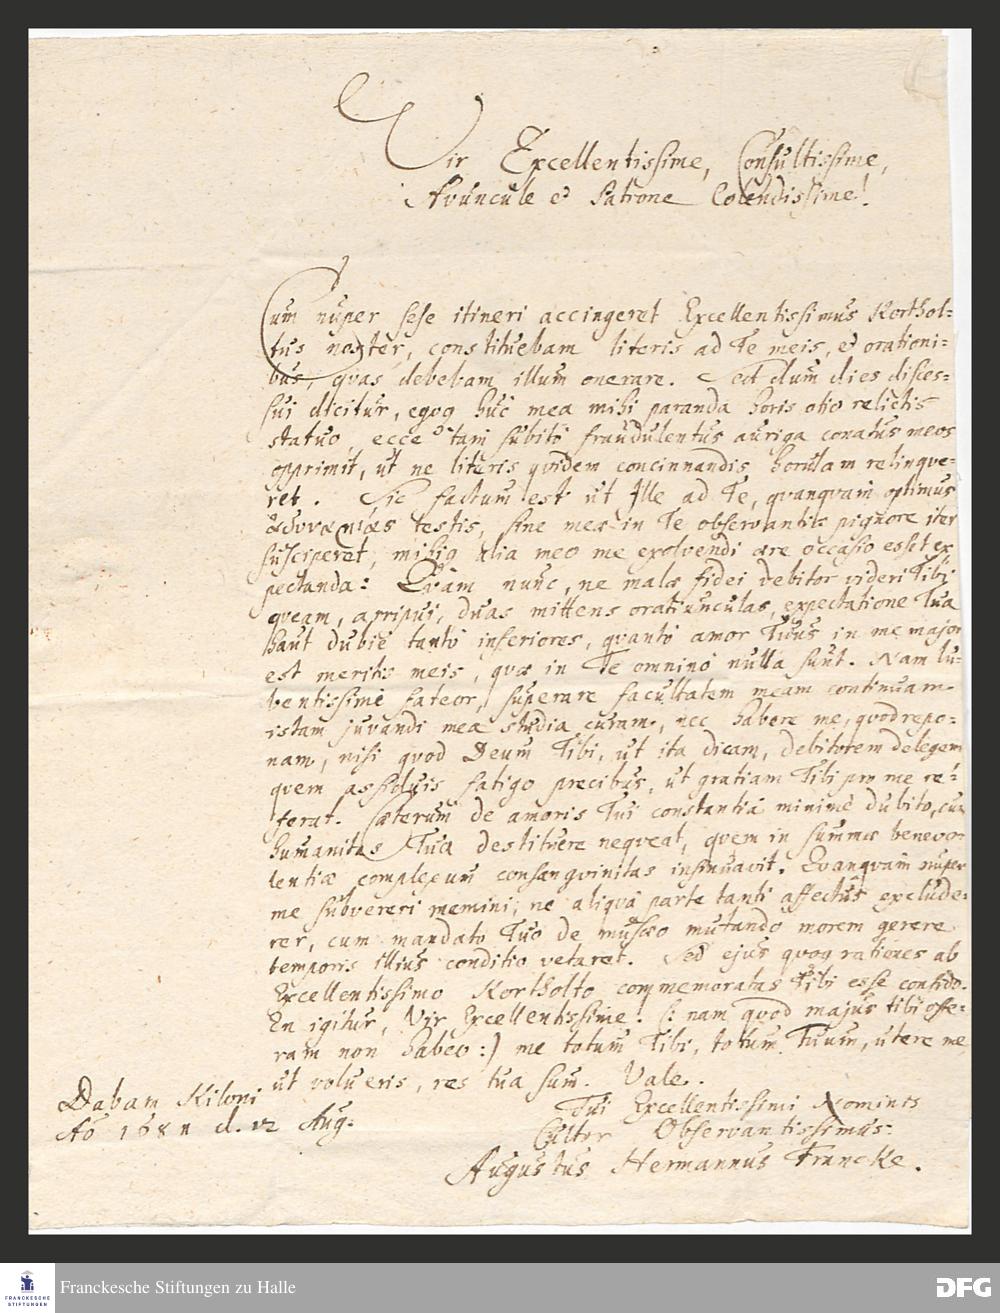 Vir Excellentissime, Consultissime,
Avuncule et Patrone Colendissime!
Cum nuper sese itineri accingeret Excellentissimus Korthol=
tus noster, constituebam literis ad Te meis, et orationi=
bus, quas debebam illum onerare. Sed dum dies disces=
sui dicitur, egoq huic mea mihi paranda horis otio relictis
statuo, ecce tam subitò fraudulentus auriga conatus meos
opprimit, ut ne lituris quidem concinnandis horulam relinque=
ret. Sic factum est ut Ille ad Te, quanquam optimus
ἀδυναμίας testis, sine meæ in Te observantiæ pignore iter
susciperet, mihiq alia meo me exolvendi ære occasio esset ex
pectanda: Quam nunc, ne malæ fidei debitor videri Tibi
queam, arripui, duas mittens oratiunculas, expectatione Tua
haut dubiè tantò inferiores, quantò amor Tuus in me major
est meritis meis, quæ in Te omninò nulla sunt. Nam lu=
bentissimè fateor, superare facultatem meam continuam
istam juvandi mea studia curam, nec habere me, quod repo=
nam, nisi quod Deum Tibi, ut ita dicam, debitorem delegem
quem assiduis fatigo precibus, ut gratiam Tibi pro me re=
ferat. Cæterum de amoris Tui constantiâ minimè dubito, cum
humanitas Tua destituere nequeat, quem in summæ benevo=
lentiæ complexum consanguinitas insinuavit. Quanquam nuper
me subvereri memini, ne aliquâ parte tanti affectûs exclude=
rer, cum mandato Tuo de musæo mutando morem gerere
temporis illius conditio vetaret. Sed ejus quoq rationes ab
Excellentissimo Kortholto commemoratas Tibi esse confido.
En igitur, Vir Excellentissime! (: nam quod majus tibi offe=
ram non habeo :) me totum Tibi, totum Tuum, utere me
ut volueris, res tua sum. Vale.
Dabam Kiloni
Ao 168 d. 12 Aug.
Tui Excellentissimi Nominis
Cultor Observantissimus
Augustus Hermannus Francke.
FRANCKESCHE
STIFTUNGEN
Franckesche Stiftungen zu Halle
DFG